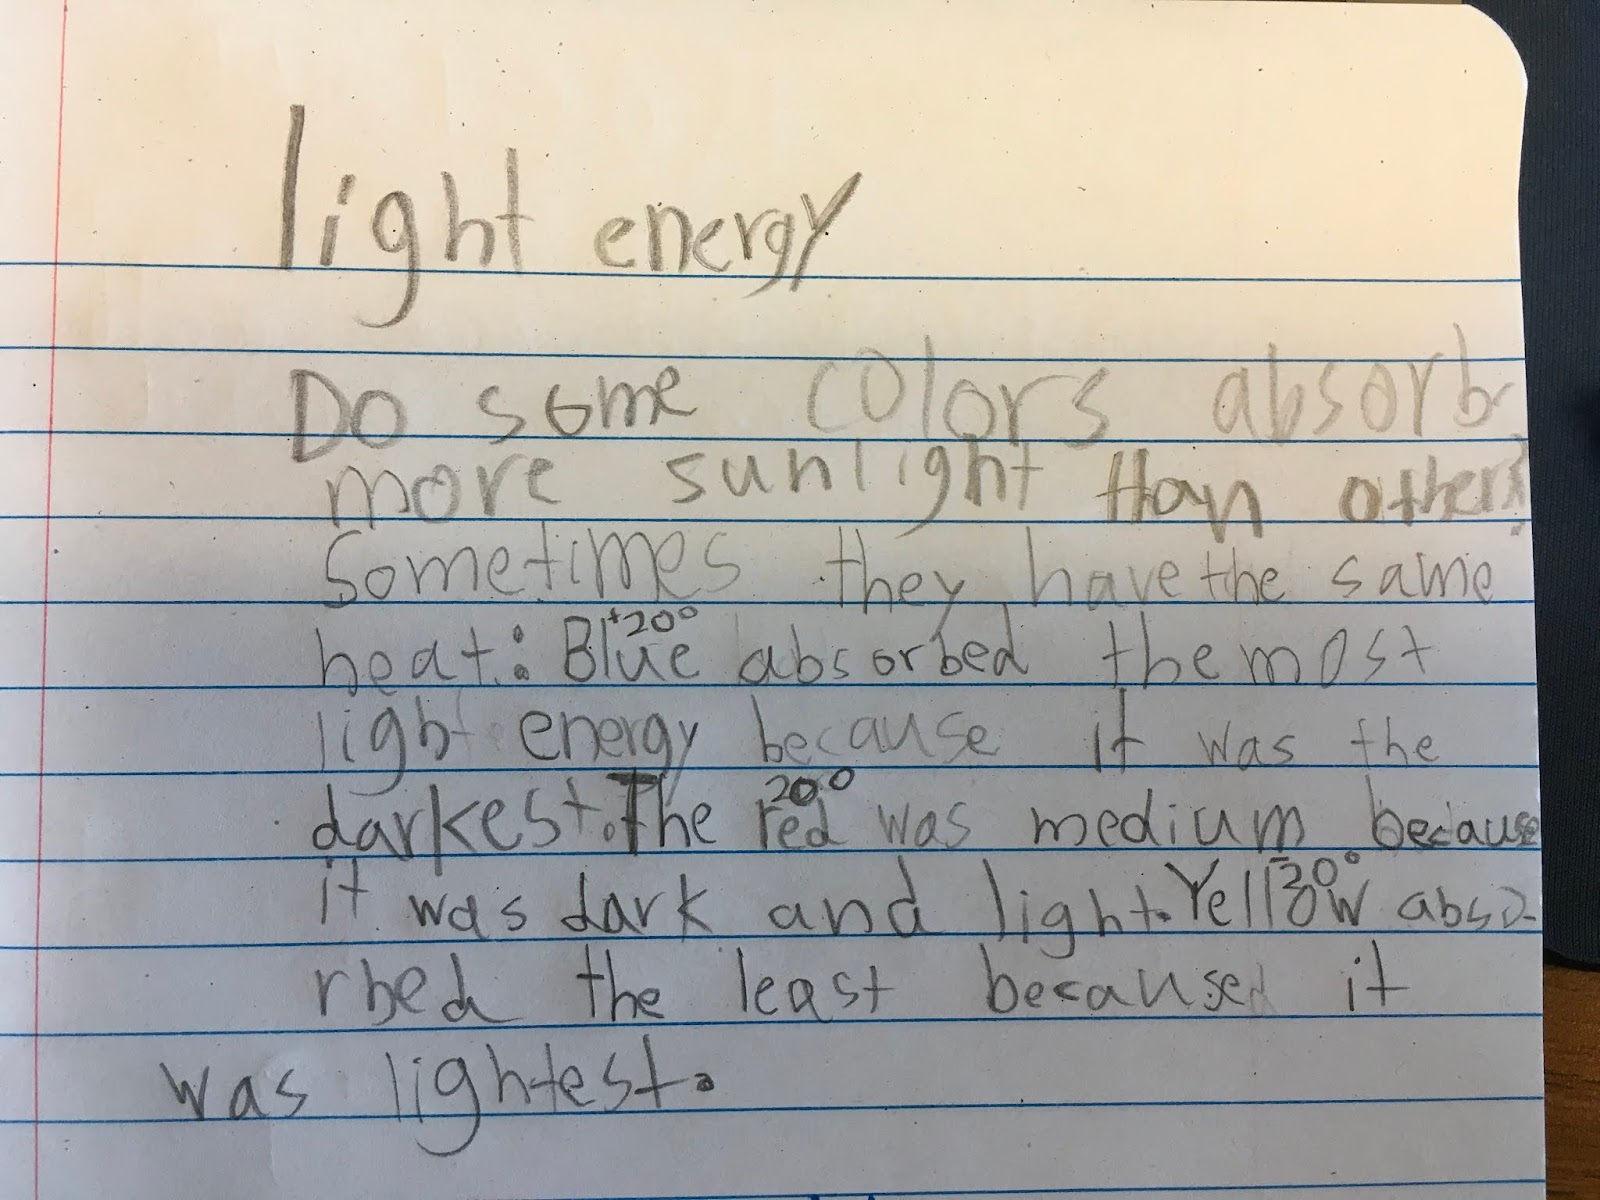 light energy
Do some colors absorb
more sunlight than others?
Sometimes they have the same
heat: Blue +20° absorbed the most
light energy because it was the
darkest. The red 20° was medium because
it was dark and light. Yellow abso-
rbed the least becaused it
was lightest.